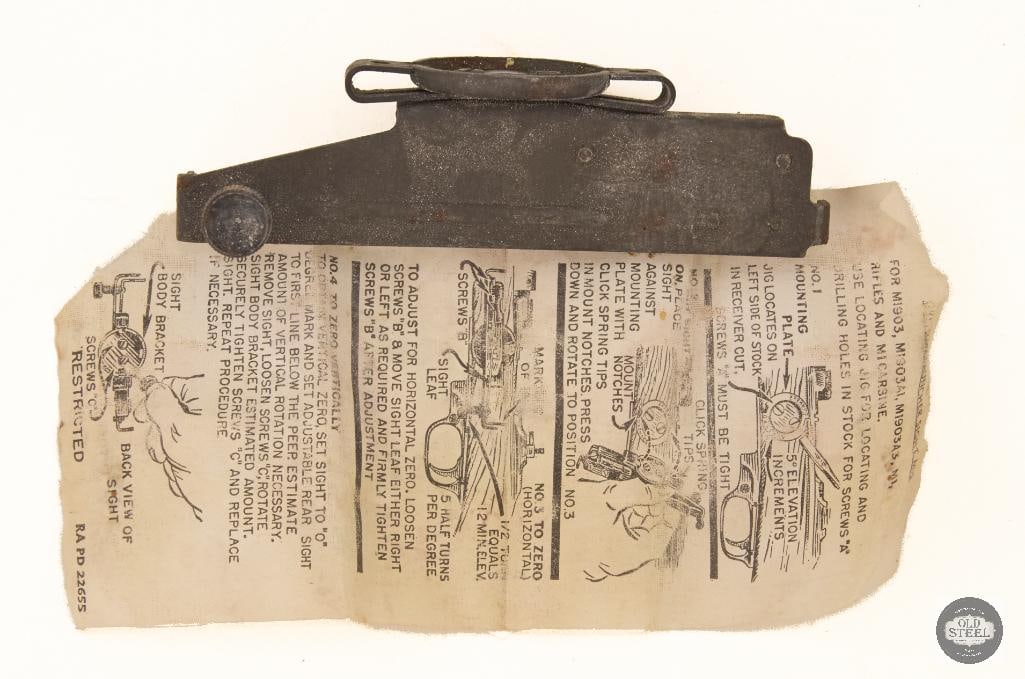 FOR M1903, M1903A1, M1903A3, M1,
RIFLES AND M1 CARBINE.
USE LOCATING JIG FOR LOCATING AND
DRILLING HOLES IN STOCK FOR SCREWS "A"
NO. 1
MOUNTING
PLATE
JIG LOCATES ON
LEFT SIDE OF STOCK
IN RECEIVER CUT.
5° ELEVATION
INCREMENTS
SCREWS "A" MUST BE TIGHT
ON, PLACE
SIGHT
AGAINST
MOUNTING
PLATE WITH
CLICK SPRING TIPS
IN MOUNT NOTCHES, PRESS
DOWN AND ROTATE TO POSITION
MOUNT
NOTCHES
CLICK SPRING
TIPS
NO. 3
NO. 3 TO ZERO
(HORIZONTAL)
MARK
OF
1/2 TURN
EQUALS
12 MIN. ELEV.
SCREWS "B"
SIGHT
LEAF
5 HALF TURNS
PER DEGREE
TO ADJUST FOR HORIZONTAL ZERO, LOOSEN
SCREWS "B" & MOVE SIGHT LEAF EITHER RIGHT
OR LEFT AS REQUIRED AND FIRMLY TIGHTEN
SCREWS "B" AFTER ADJUSTMENT
NO. 4 TO ZERO VERTICALLY
TO OBTAIN VERTICAL ZERO, SET SIGHT TO "0"
DEGREE MARK AND SET ADJUSTABLE REAR SIGHT
TO FIRST LINE BELOW THE PEEP. ESTIMATE
AMOUNT OF VERTICAL ROTATION NECESSARY.
REMOVE SIGHT, LOOSEN SCREWS "C", ROTATE
SIGHT BODY BRACKET ESTIMATED AMOUNT.
SECURELY TIGHTEN SCREWS "C" AND REPLACE
SIGHT. REPEAT PROCEDURE
IF NECESSARY.
SIGHT
BODY BRACKET
SCREWS "C"
BACK VIEW OF
SIGHT
RESTRICTED
RA PD 22655
OLD
STEEL